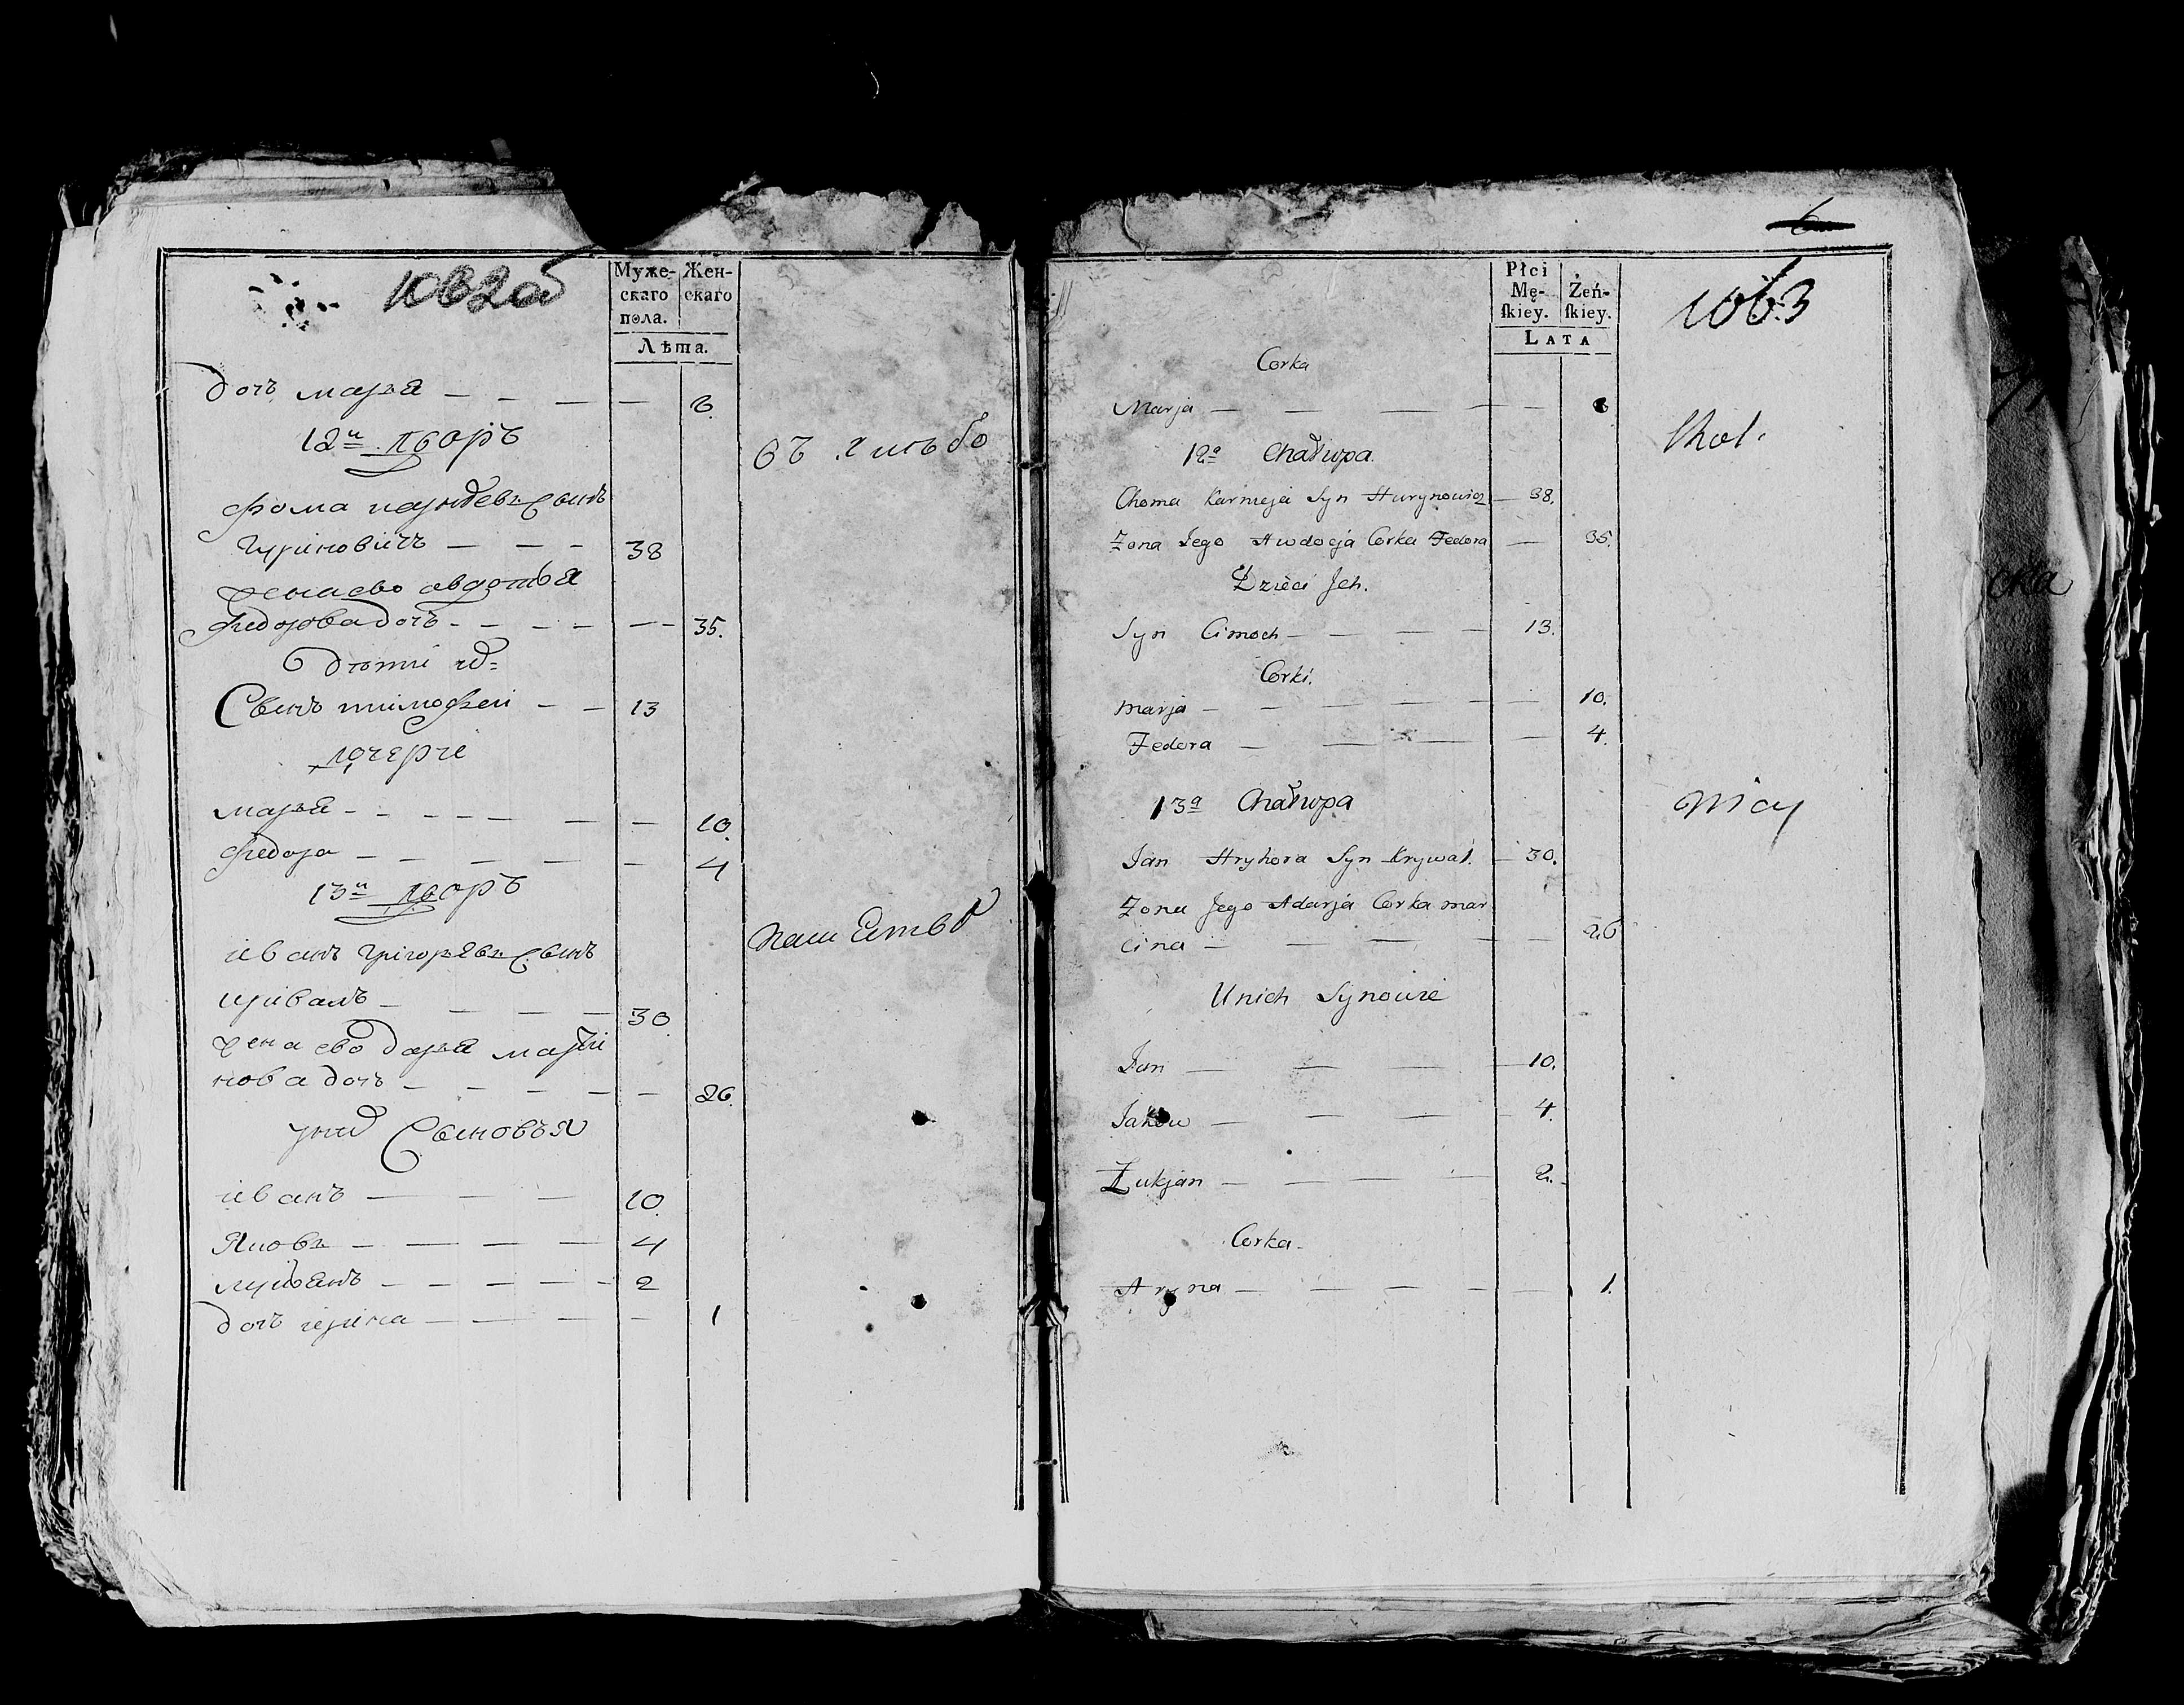 1062об
Муже-
скаго
пола.
Жен-
скаго
Лѣта.
дочь марья — — — — 8.
12й дворъ
фома карнѣевъ сынъ
гуриновичъ — — — 38
жена ево авдотья
федорова дочь — — — — — 35.
дѣти
Сынъ тимофей — — 13
дочери
марья — — — — — — — 10.
федора — — — — — — 4
13й дворъ
иванъ григорьевъ сынъ
кривалъ — — — — 30
жена ево дарья марти
нова дочь — — — — — — 26.
Сыновья
иванъ — — — 10.
Яковъ — — — — 4
лукьянъ — — — — — 2
дочь ирина — — — — — 1
6
1063
Płci
Mę-
ſkiey.
Żeń-
ſkiey.
LATA
Corka
Marja — — — — — 8
12a Chałupa.
Choma Karnieja Syn Hurynowicz — 38.
Zona Jego Awdocja Corka Fedora — 35.
Dzieci Jch.
Syn Cimoch — — — — 13.
Corki.
Marja — — — — — — 10.
Fedora — — — — 4.
13a Chałupa
Jan Hryhora Syn Krywal. — 30.
Zona Jego Adarja Corka mar
cina — — — — — 26
U nich Synowie
Jan — — — — 10.
Jakow — — — — 4.
Łukjan — — — — 2.
Corka
Aryna — — — — — 1.